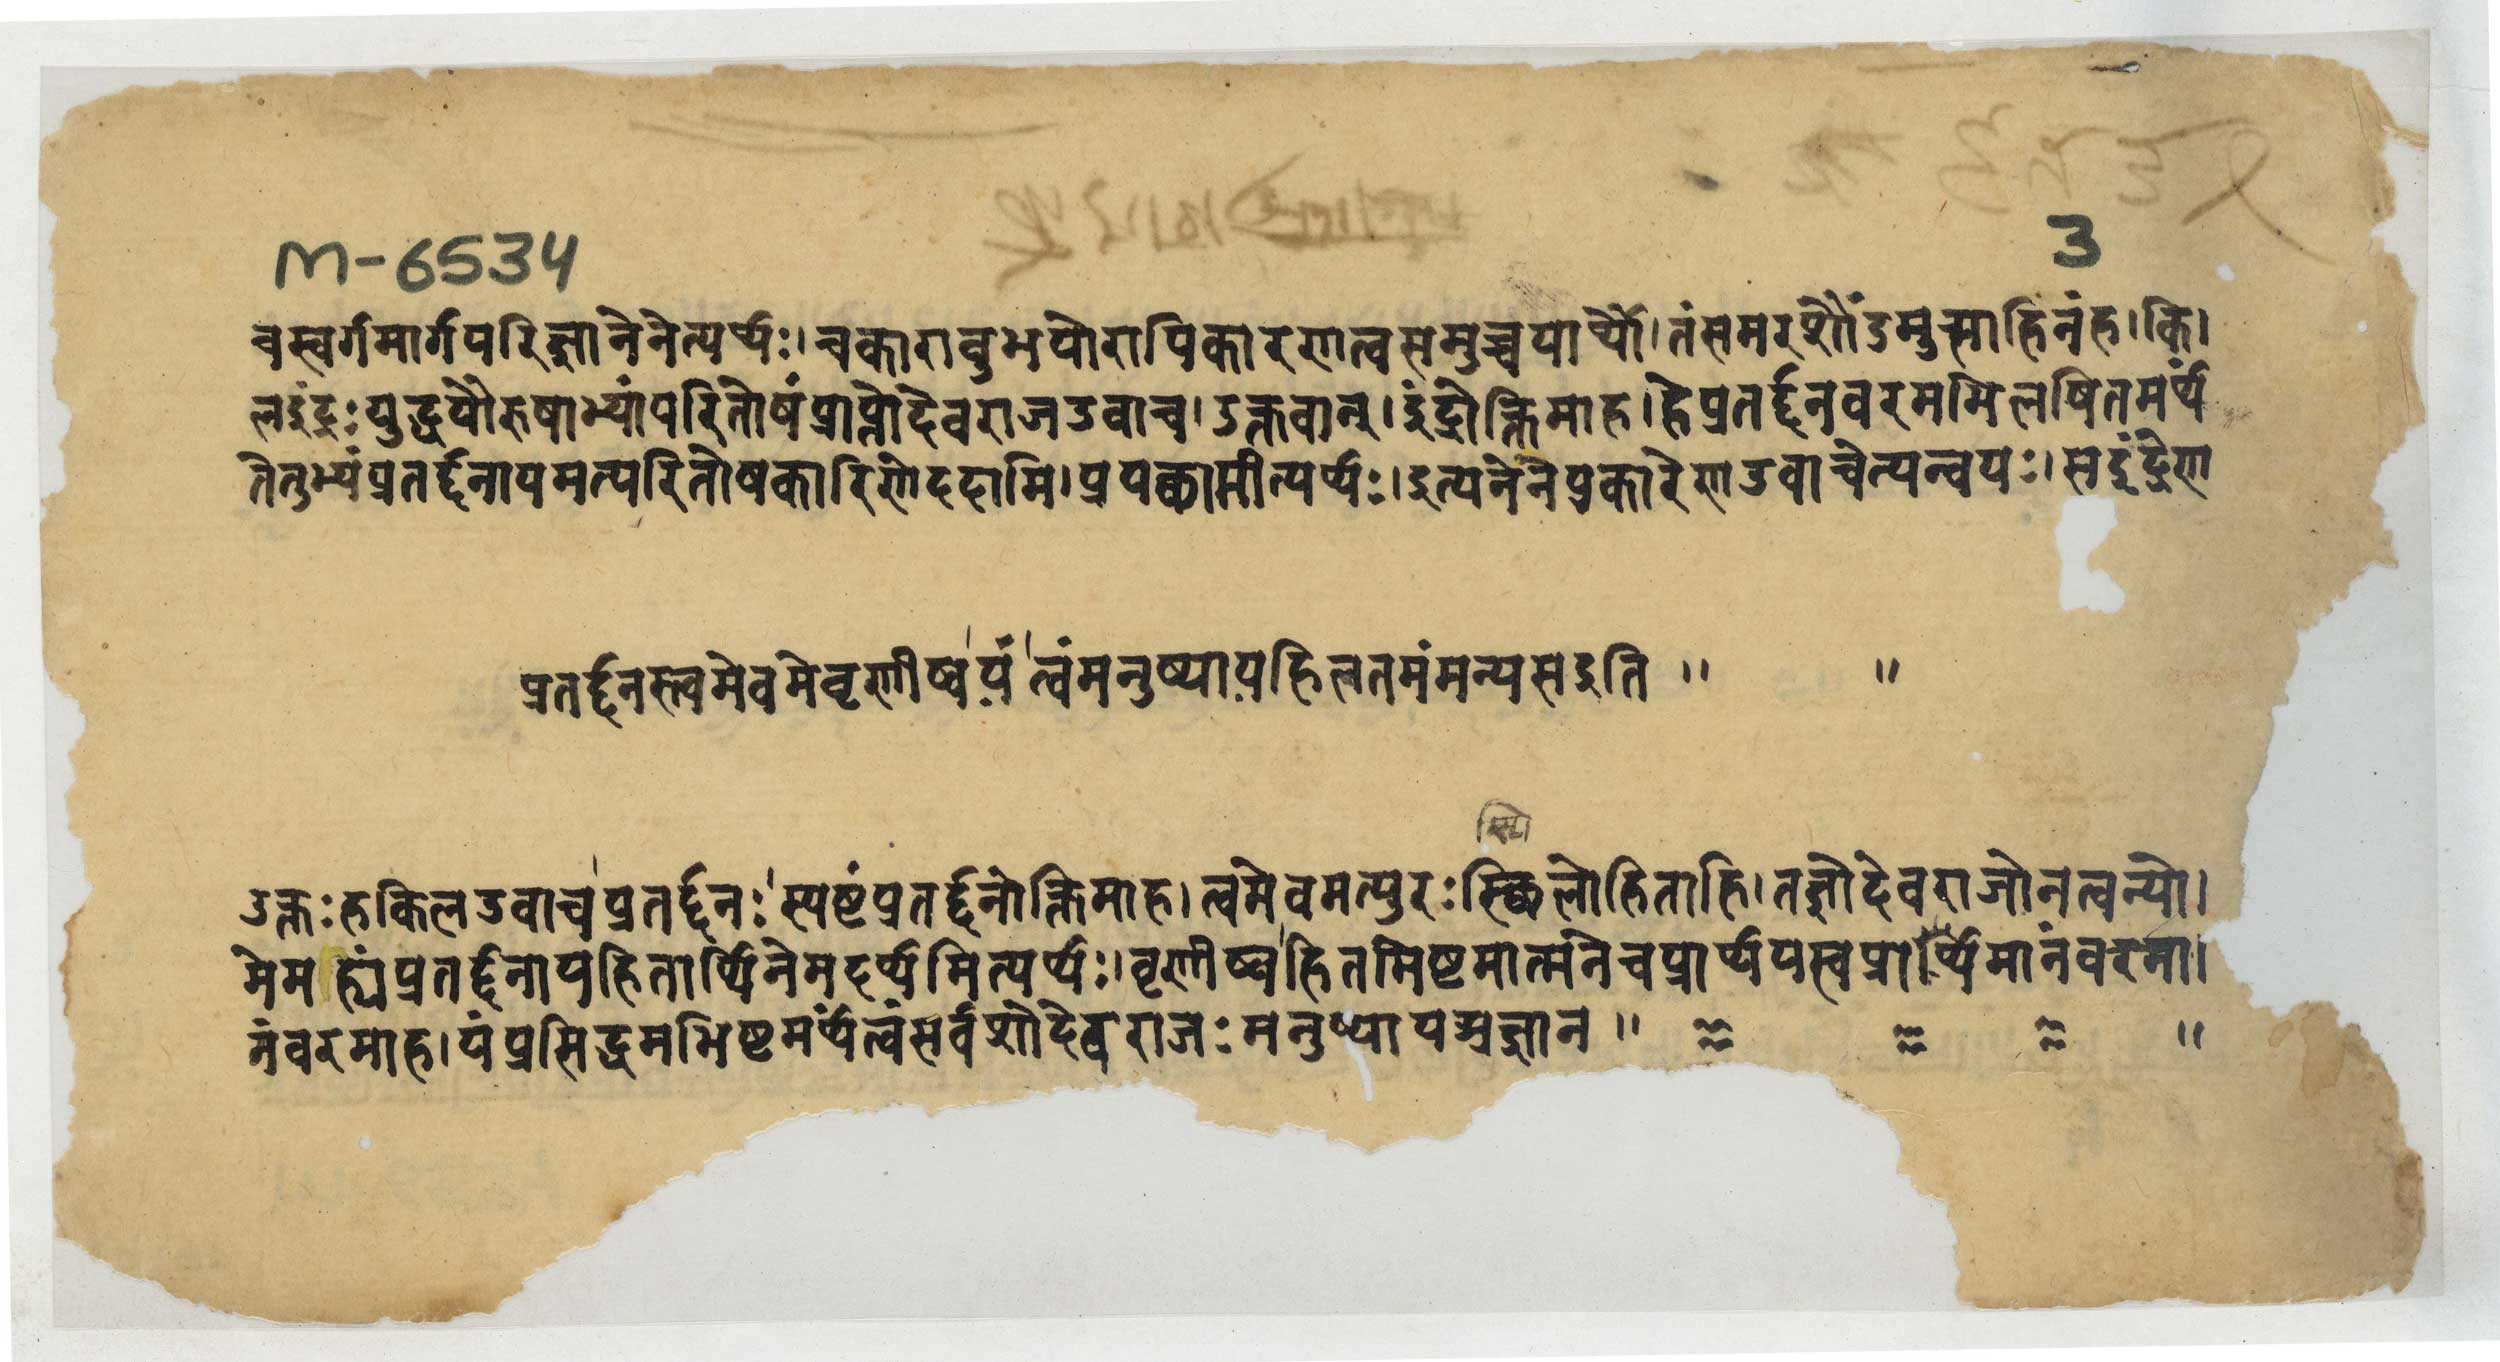 M-6534
3
वस्वर्गमार्गपरिज्ञानेनेत्यर्थः।चकारावुभयोरापिकारणत्वसमुच्चयार्थौ।तंसमरशौंडमुत्साहिनंह।कि।
लइंद्रःयुद्धपौरुषाभ्यांपरितोषंप्राप्तोदेवराजउवाच।उक्तवान्।इंद्रोक्तिमाह।हेप्रतर्द्दनवरमभिलषितमर्थं
तेतुभ्यंप्रतर्द्दनायमत्परितोषकारिणेददामि।प्रयच्छामीत्यर्थः।इत्यनेनप्रकारेणउवाचेत्यन्वयः।सइंद्रेण
प्रतर्द्दनस्त्वमेवमेवृणीष्व'यं'त्वंमनुष्यायहितमंमन्यसइति॥ ॥
उक्तःहकिलउवाच'प्रतर्द्दनः'स्पष्टंप्रतर्द्दनोक्तिमाह।त्वमेवमत्पुरःस्छिलोहिताहि।तज्ञोदेवराजोनत्वन्यो।
मेमह्यंप्रतर्द्दनायहितार्थिनेमदर्थमित्यर्थः।वृणीष्व'हितमिष्टमात्मनेचप्रार्थयस्वप्रार्थ्यमानंवरमा।
नंवरमाह।यंप्रसिद्धमभिष्टमर्थंत्वंसर्वज्ञोदेवराजःमनुष्यायअज्ञान॥ ॥